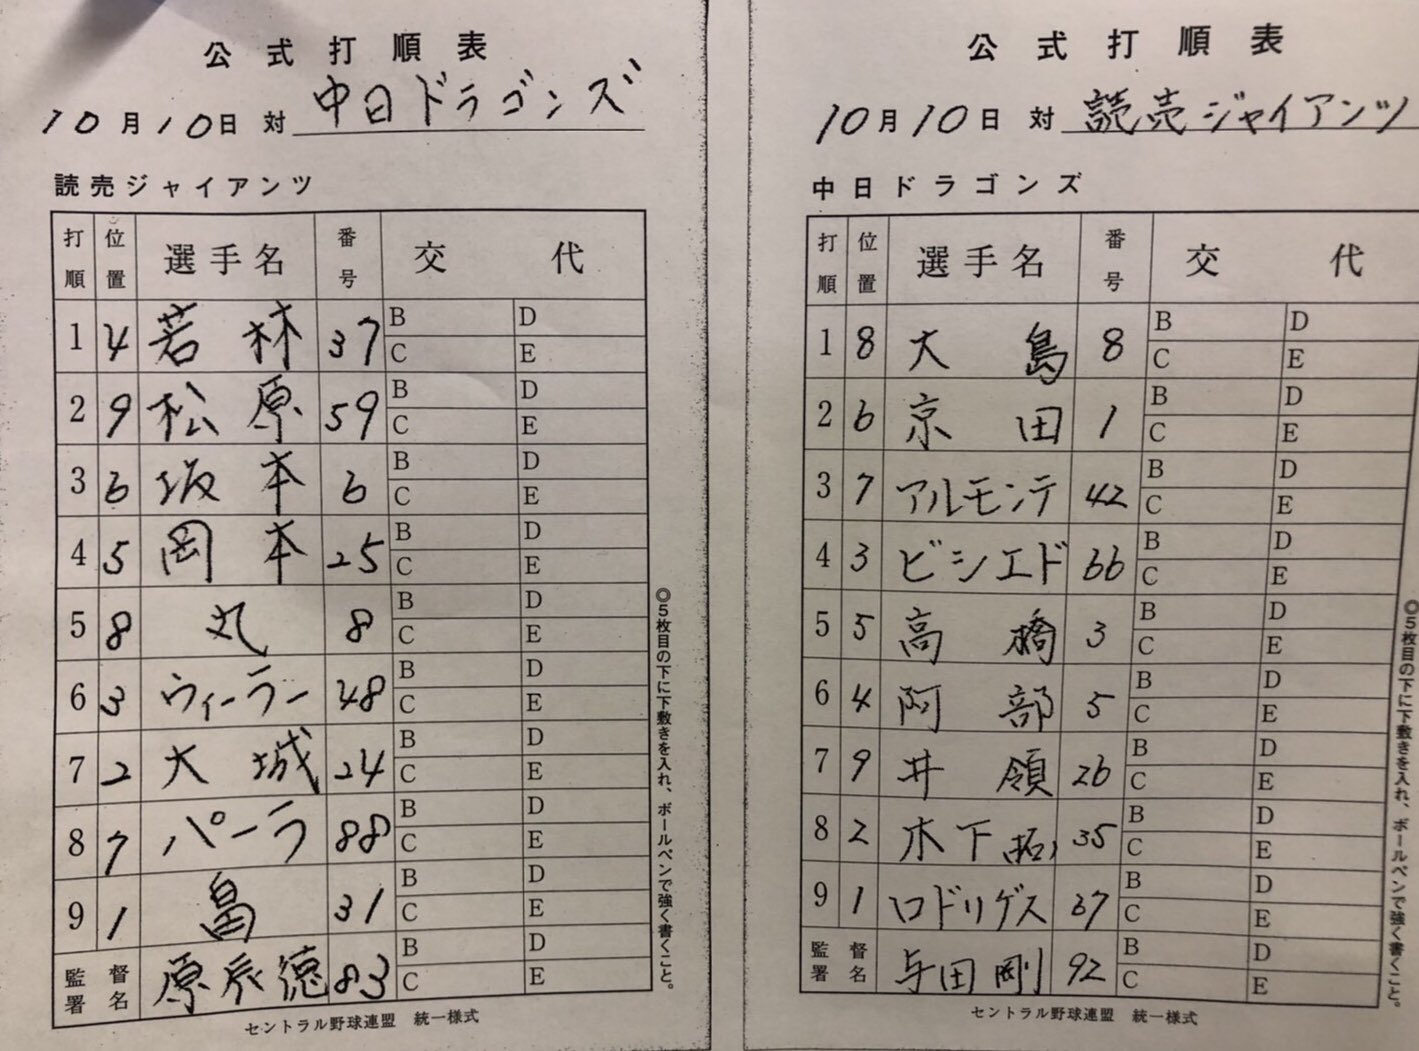 公式打順表
10月10日 対 中日ドラゴンズ
読売ジャイアンツ
打順 位置 選手名 番号 交代
1 4 若林 37 B D C E
2 9 松原 59 B D C E
3 6 坂本 6 B D C E
4 5 岡本 25 B D C E
5 8 丸 8 B D C E
6 3 ウィーラー 48 B D C E
7 2 大城 24 B D C E
8 7 パーラ 88 B D C E
9 1 畠 31 B D C E
監督署名 原辰徳 83 B D C E
セントラル野球連盟 統一様式
◎5枚目の下に下敷きを入れ、ボールペンで強く書くこと。
公式打順表
10月10日 対 読売ジャイアンツ
中日ドラゴンズ
打順 位置 選手名 番号 交代
1 8 大島 8 B D C E
2 6 京田 1 B D C E
3 7 アルモンテ 42 B D C E
4 3 ビシエド 66 B D C E
5 5 高橋 3 B D C E
6 4 阿部 5 B D C E
7 9 井領 26 B D C E
8 2 木下(拓) 35 B D C E
9 1 ロドリゲス 37 B D C E
監督署名 与田剛 92 B D C E
セントラル野球連盟 統一様式
◎5枚目の下に下敷きを入れ、ボールペンで強く書くこと。